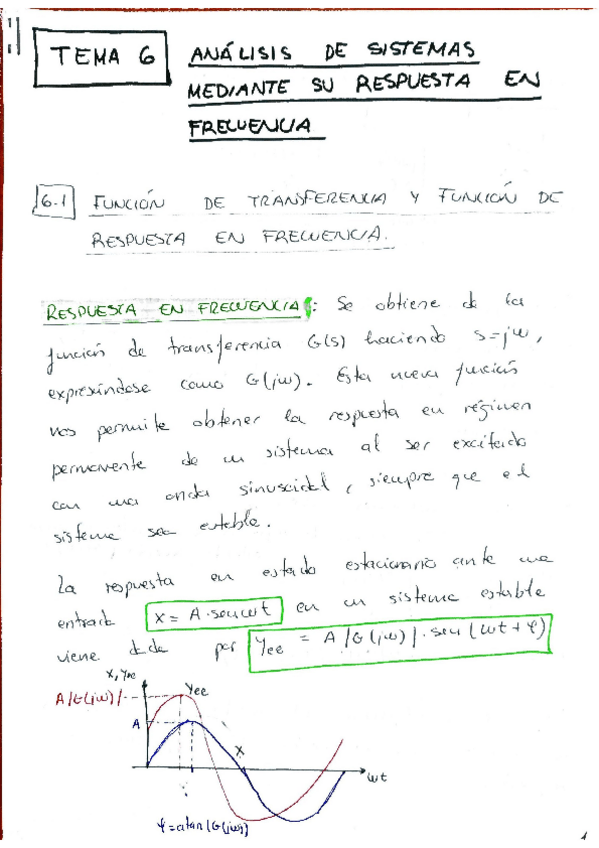 TEMA 6 ANÁLISIS DE SISTEMAS
MEDIANTE SU RESPUESTA EN
FRECUENCIA
6.1 FUNCIÓN DE TRANSFERENCIA Y FUNCIÓN DE
RESPUESTA EN FRECUENCIA.
RESPUESTA EN FRECUENCIA: Se obtiene de la
función de transferencia G(s) haciendo s=jω,
expresándose como G(jω). Esta nueva función
nos permite obtener la respuesta en régimen
permanente de un sistema al ser excitado
con una onda sinusoidal, siempre que el
sistema sea estable.
La respuesta en estado estacionario ante una
entrada x = A·senωt en un sistema estable
viene dada por Yee = A|G(jω)|·sen(ωt+φ)
x, Yee
A|G(jω)|
Yee
A
x
ωt
φ=atan(G(jω))
1